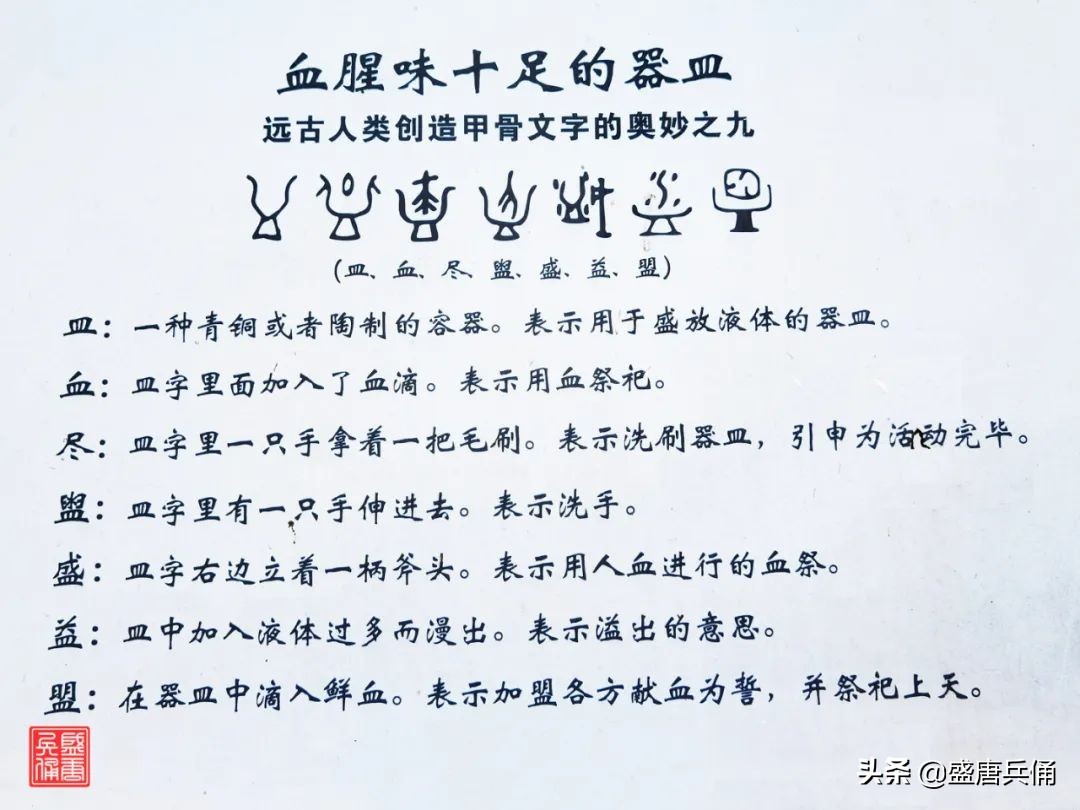 血腥味十足的器皿
远古人类创造甲骨文字的奥妙之九
(皿、血、尽、盥、盛、益、盟)
皿：一种青铜或者陶制的容器。表示用于盛放液体的器皿。
血：皿字里面加入了血滴。表示用血祭祀。
尽：皿字里一只手拿着一把毛刷。表示洗刷器皿，引申为活动完毕。
盥：皿字里有一只手伸进去。表示洗手。
盛：皿字右边立着一柄斧头。表示用人血进行的血祭。
益：皿中加入液体过多而漫出。表示溢出的意思。
盟：在器皿中滴入鲜血。表示加盟各方献血为誓，并祭祀上天。
盛唐兵俑
头条 @盛唐兵俑